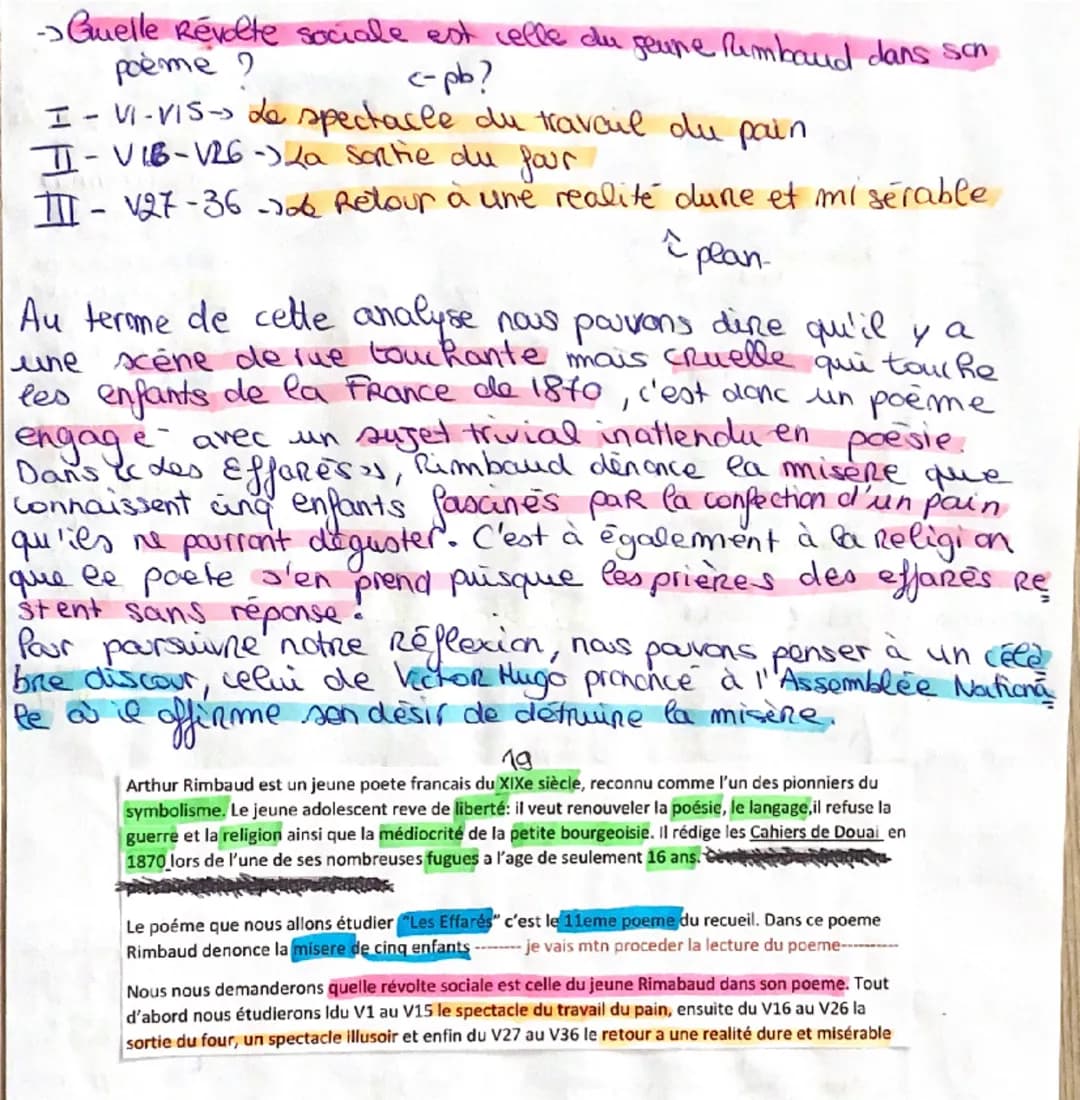 -> Quelle Révolte sociale est celle du jeune Rimbaud dans son
poème ? <- pb?
I - V1-V15 -> Le spectacle du travail du pain
II - V16-V26 -> La sortie du four
III - V27-36 -> Retour à une realité dure et misérable
↑ plan-
Au terme de cette analyse nous pouvons dire qu'il y a
une scène de rue touchante mais cruelle qui touche
les enfants de la France de 1870, c'est donc un poème
engagé avec un sujet trivial inattendu en poésie.
Dans « Les Effarés », Rimbaud dénonce la misère que
connaissent cinq enfants fascinés par la confection d'un pain
qu'ils ne pourront déguster. C'est à également à la Religion
que le poete s'en prend puisque les prières des effarés Re
stent sans réponse.
Pour poursuivre notre Réflexion, nous pouvons penser à un célè
bre discour, celui de Victor Hugo prononcé à l'Assemblée Nationa
le où il affirme son désir de détruire la misère.
19
Arthur Rimbaud est un jeune poete francais du XIXe siècle, reconnu comme l'un des pionniers du
symbolisme. Le jeune adolescent reve de liberté: il veut renouveler la poésie, le langage,il refuse la
guerre et la religion ainsi que la médiocrité de la petite bourgeoisie. Il rédige les Cahiers de Douai en
1870 lors de l'une de ses nombreuses fugues a l'age de seulement 16 ans.
Le poéme que nous allons étudier "Les Effarés" c'est le 11eme poeme du recueil. Dans ce poeme
Rimbaud denonce la misere de cinq enfants -------- je vais mtn proceder la lecture du poeme----------
Nous nous demanderons quelle révolte sociale est celle du jeune Rimabaud dans son poeme. Tout
d'abord nous étudierons Idu V1 au V15 le spectacle du travail du pain, ensuite du V16 au V26 la
sortie du four, un spectacle illusoir et enfin du V27 au V36 le retour a une realité dure et misérable